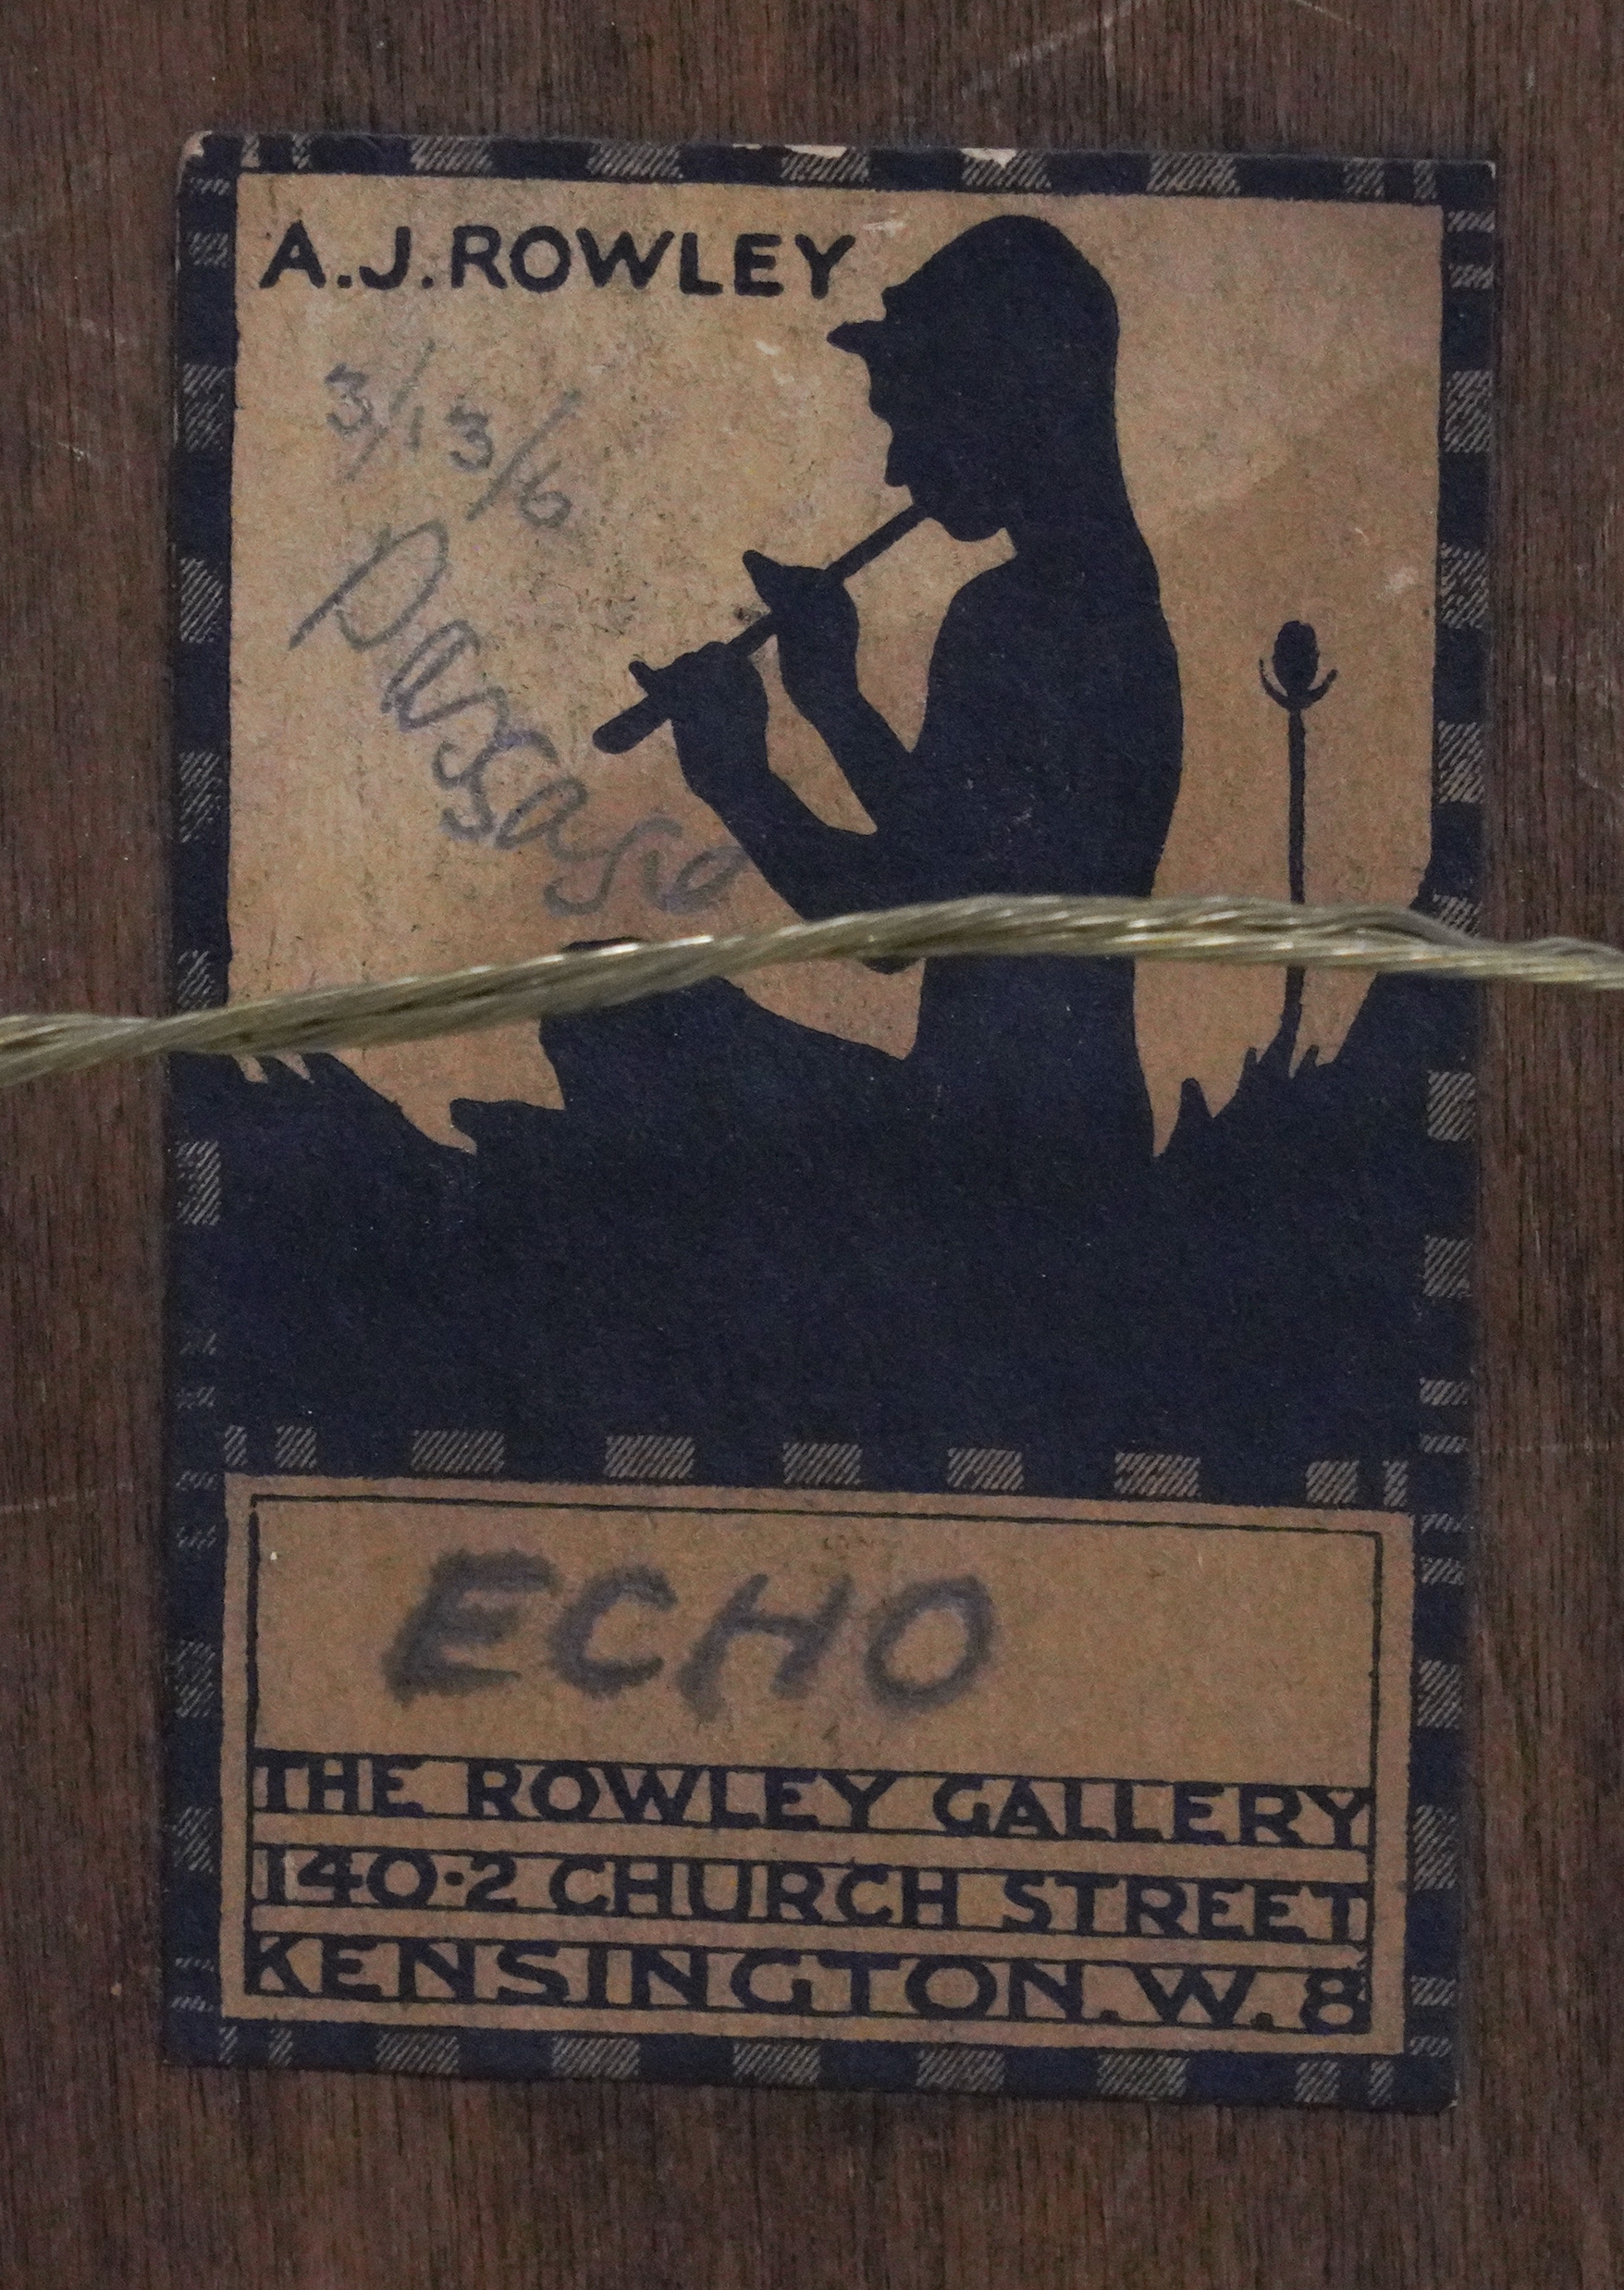 A.J.ROWLEY
3/13/6
ECHO
THE ROWLEY GALLERY
140·2 CHURCH STREET
KENSINGTON.W.8